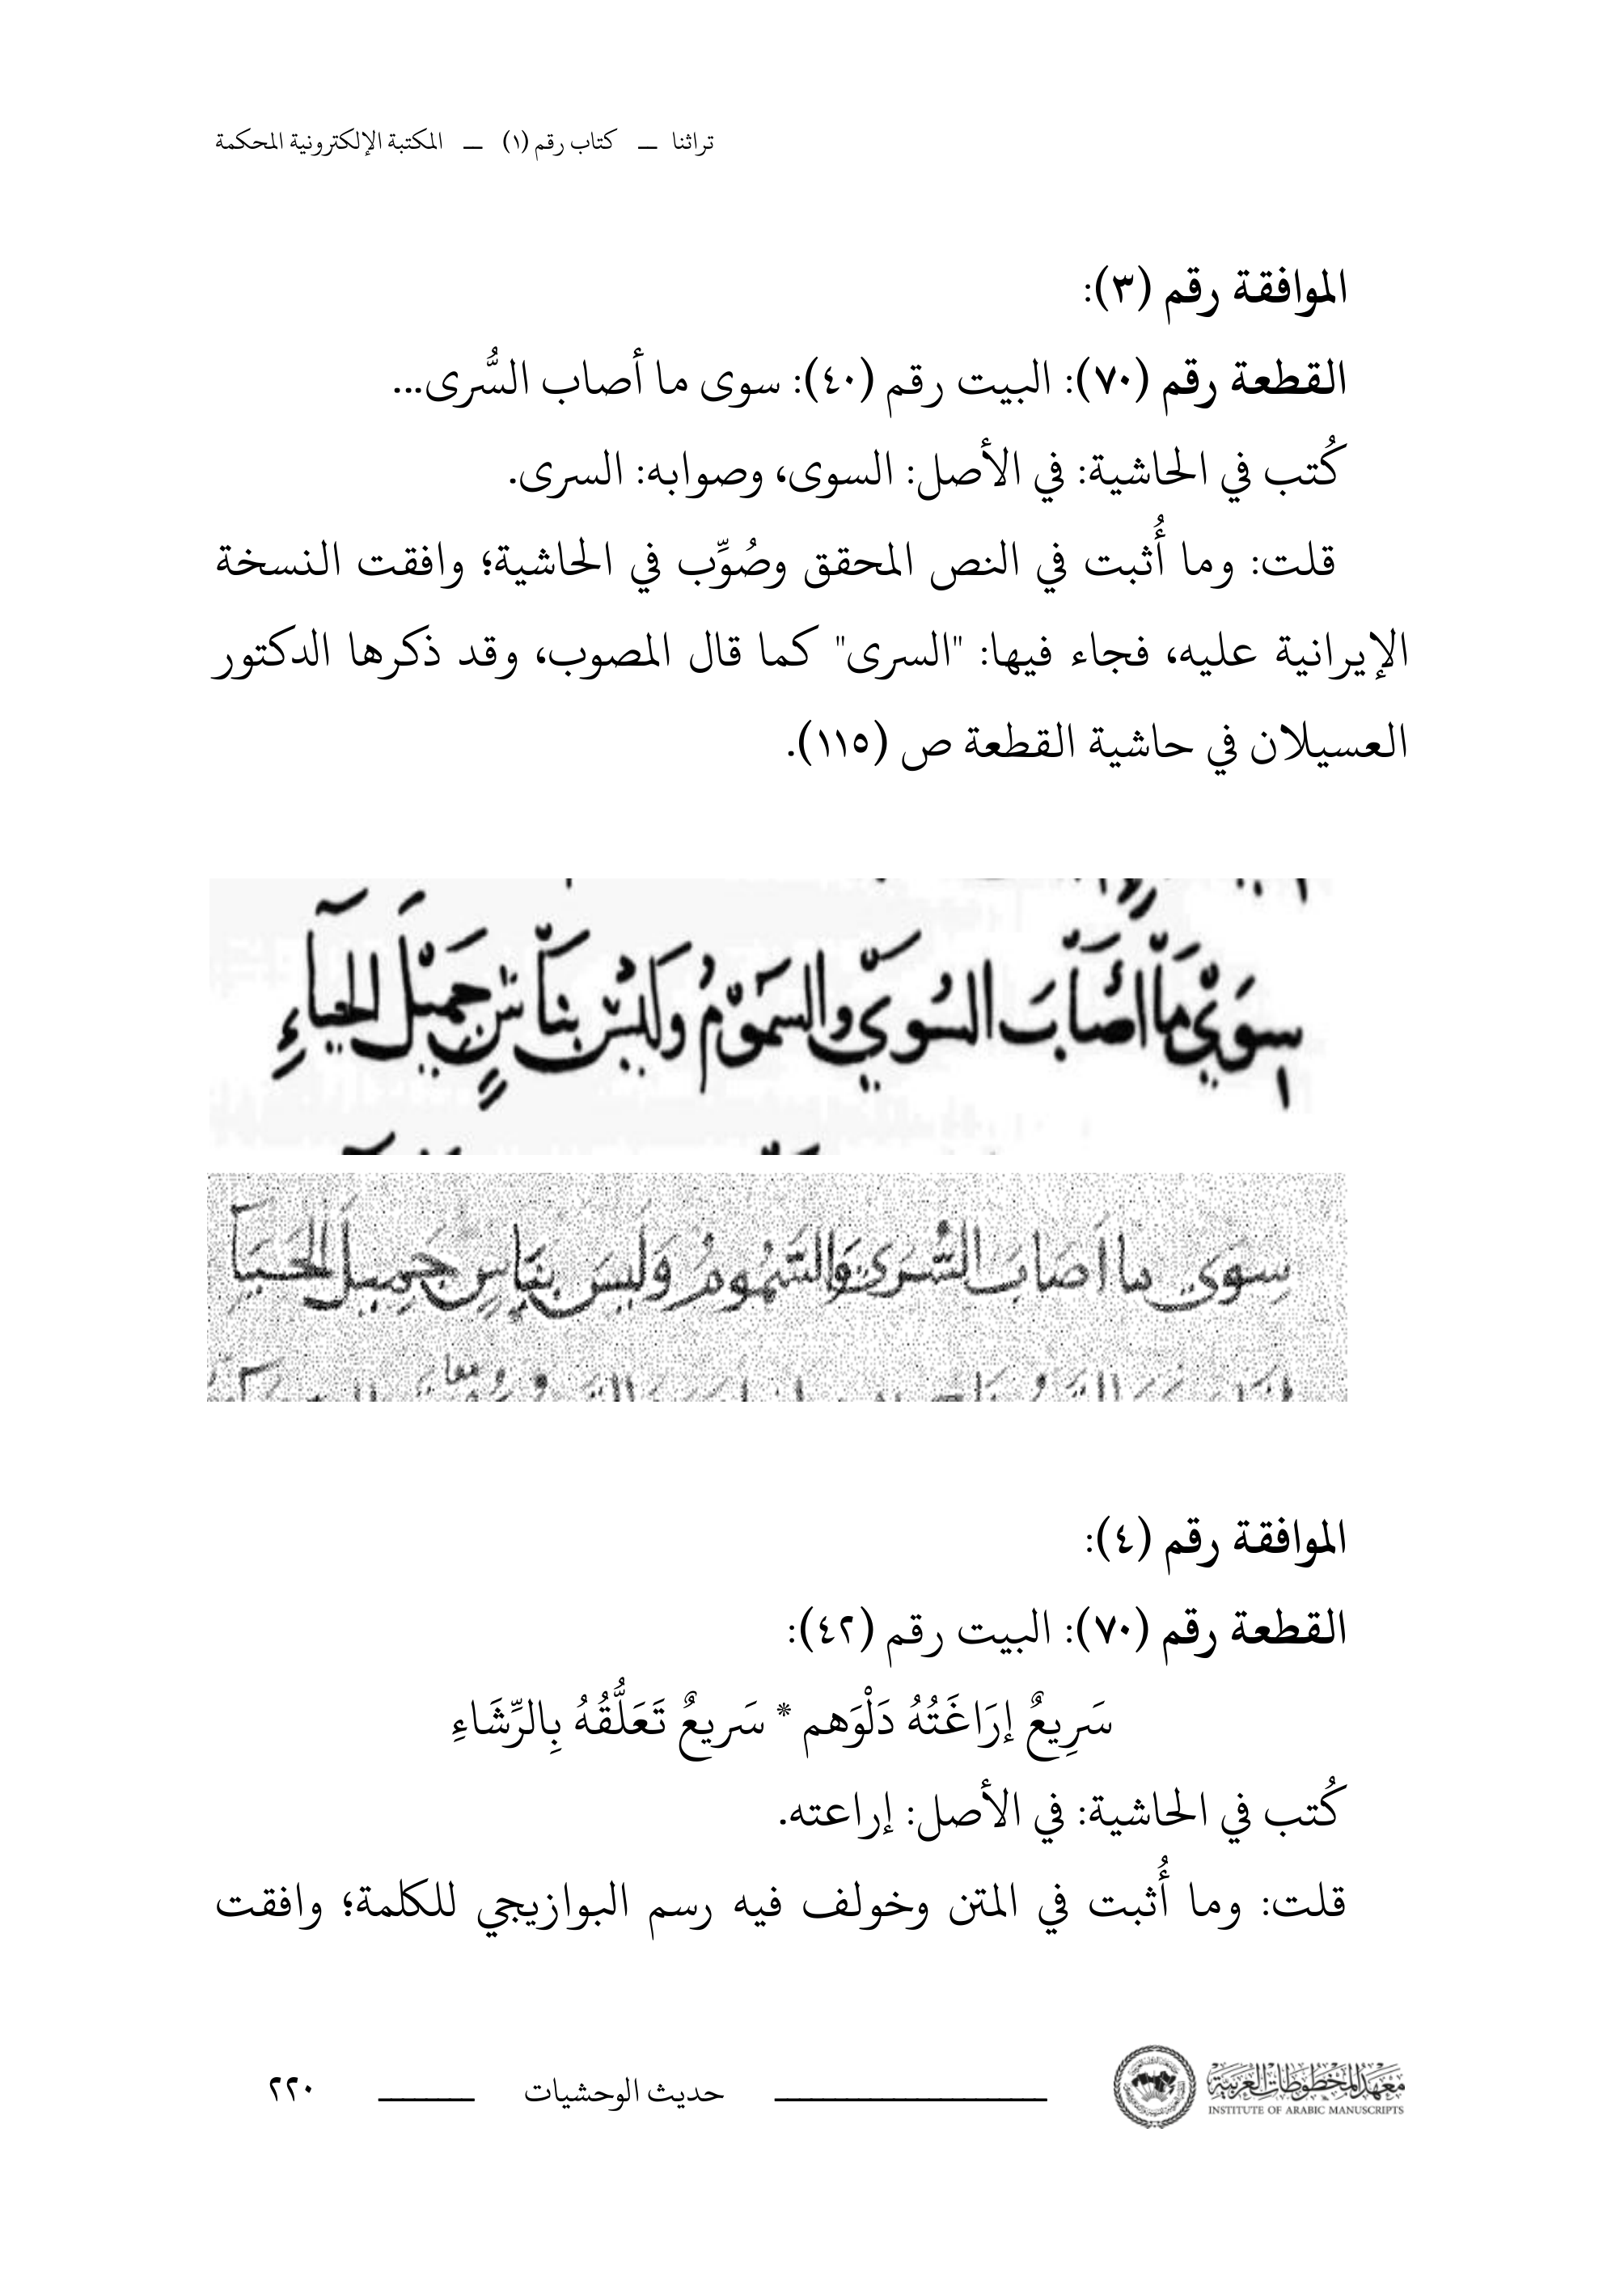 تراثنا — كتاب رقم (١) — المكتبة الإلكترونية المحكمة
الموافقة رقم (٣):
القطعة رقم (٧٠): البيت رقم (٤٠): سوى ما أصاب السُّرى...
كُتب في الحاشية: في الأصل: السوى، وصوابه: السرى.
قلت: وما أُثبت في النص المحقق وصُوِّب في الحاشية؛ وافقت النسخة
الإيرانية عليه، فجاء فيها: "السرى" كما قال المصوب، وقد ذكرها الدكتور
العسيلان في حاشية القطعة ص (١١٥).
سوى ما أصاب السوي والسموم وليس بناس جميل الحياء
سوى ما اصاب السرى والسموم وليس بناس جميل الحيا
الموافقة رقم (٤):
القطعة رقم (٧٠): البيت رقم (٤٢):
سَرِيعٌ إرَاغَتُهُ دَلْوَهم * سَريعٌ تَعَلُّقُهُ بِالرِّشَاءِ
كُتب في الحاشية: في الأصل: إراعته.
قلت: وما أُثبت في المتن وخولف فيه رسم البوازيجي للكلمة؛ وافقت
معهد المخطوطات العربية
INSTITUTE OF ARABIC MANUSCRIPTS
حديث الوحشيات
٢٢٠